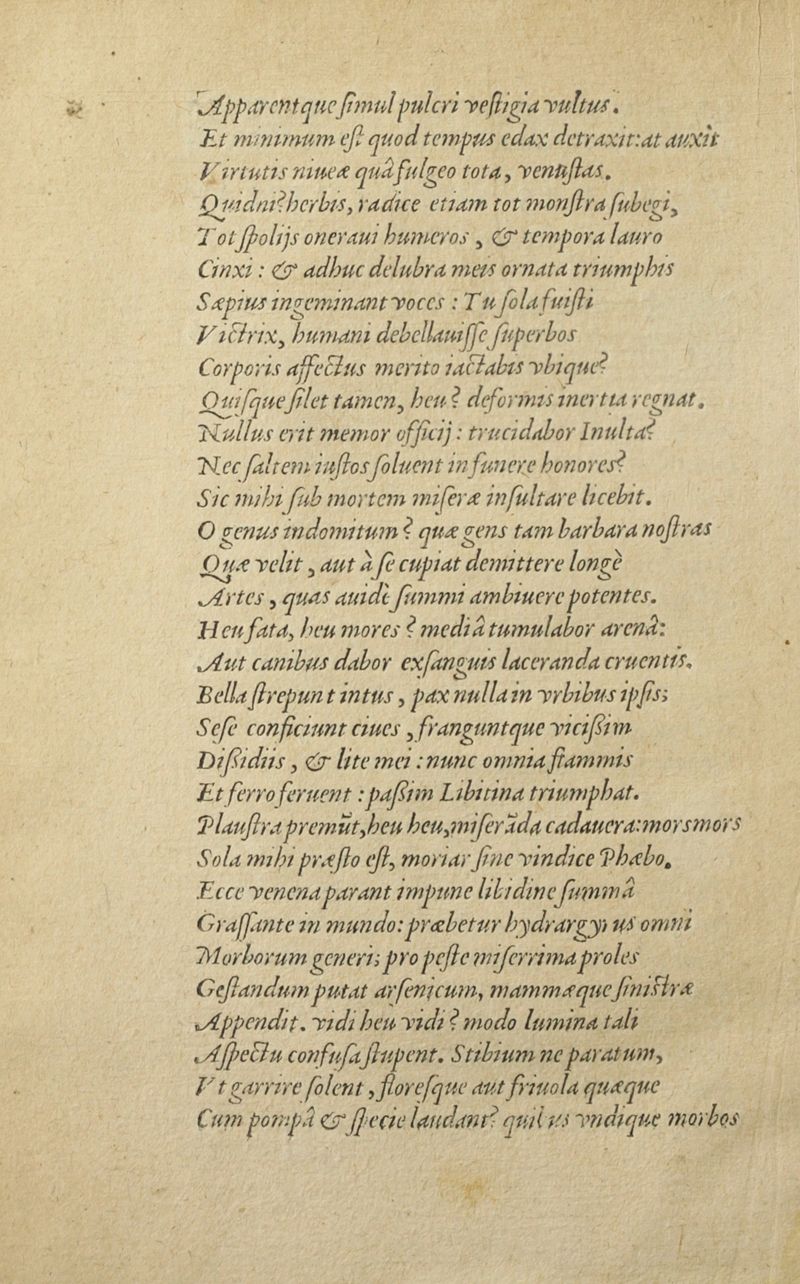 Apparentque ſimul pulcri veſtigia vultus.
Et minimum eſt quod tempus edax detraxit: at auxit
Virtutis niueæ quâ fulgeo tota, venuſtas.
Quidni? herbis, radice etiam tot monſtra ſubegi,
Tot ſpolijs oneraui humeros, & tempora lauro
Cinxi: & adhuc delubra meis ornata triumphis
Sæpius ingeminant voces: Tu ſola fuiſti
Victrix, humani debellauiſſe ſuperbos
Corporis affectus merito iactabis vbique?
Quiſque ſilet tamen, heu? deformis inertia regnat.
Nullus erit memor officij: trucidabor Inulta?
Nec ſaltem iuſtos ſoluent in funere honores?
Sic mihi ſub mortem miſeræ inſultare licebit.
O genus indomitum? quæ gens tam barbara noſtras
Quæ velit, aut à ſe cupiat demittere longè
Artes, quas auidè ſummi ambiuere potentes.
Heu fata, heu mores? mediâ tumulabor arenâ:
Aut canibus dabor exſanguis laceranda cruentis.
Bella ſtrepunt intus, pax nulla in vrbibus ipſis;
Seſe conficiunt ciues, franguntque viciſſim
Diſſidiis, & lite mei: nunc omnia flammis
Et ferro feruent: paſſim Libitina triumphat.
Plauſtra premūt, heu heu, miserāda cadauera: mors mors
Sola mihi præſto eſt, moriar ſine vindice Phæbo.
Ecce venena parant impune libidine ſummâ
Graſſante in mundo: præbetur hydrargyrus omni
Morborum generi; pro peſte miſerrima proles
Geſtandum putat arſenicum, mammæque ſiniſtræ
Appendit. vidi heu vidi? modo lumina tali
Aſpectu confuſa ſtupent. Stibium ne paratum,
Vt garrire ſolent, floreſque aut friuola quæque
Cum pompâ & ſpecie laudant? quibus vndique morbos